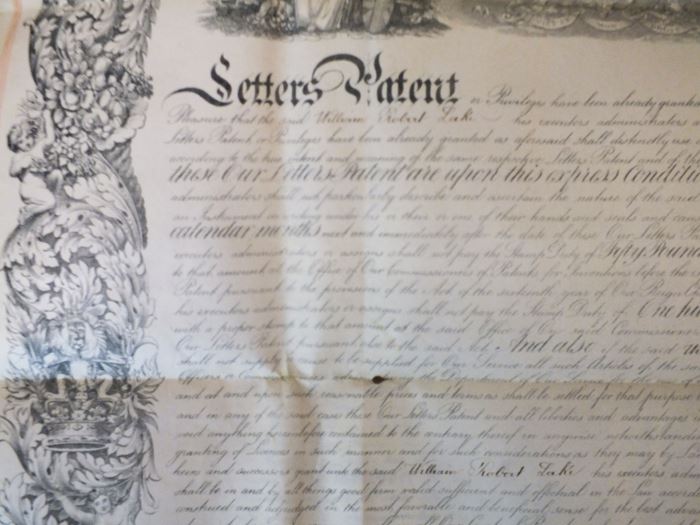 Letters Patent or Privileges have been already granted
Pleasure that the said William Robert Lake his executors administrators a
Letters Patent or Privileges have been already granted as aforesaid shall distinctly use
according to the true intent and meaning of the same respective Letters Patent and of
these Our Letters Patent are upon this express Condition
administrators shall not particularly describe and ascertain the nature of the said
an Instrument in writing under his or their or one of their hands and seals and
calendar months next and immediately after the date of these Our Letters
executors administrators or assigns shall not pay the Stamp Duty of Fifty Pounds
to that amount at the Office of Our Commissioners of Patents for Inventions before the
Patent pursuant to the provisions of the Act of the sixteenth year of Our Reign
his executors administrators or assigns shall not pay the Stamp Duty of One hu
with a proper stamp to that amount at the said Office of Our said Commissioners
Our Letters Patent pursuant also to the said Act And also if the said
shall not supply or cause to be supplied for Our Service all such Articles of the
Officers or Department of Our
and at and upon such reasonable prices and terms as shall be settled for that purpose
and in any of the said cases these Our Letters Patent and all liberties and advantages
void anything hereinbefore contained to the contrary thereof in anywise notwithstanding
granting of Licences in such manner and for such considerations as they may by Law
heirs and successors grant unto the said William Robert Lake his executors adm
shall be in and by all things good firm valid sufficient and effectual in the Law accord
construed and adjudged in the most favorable and beneficial sense for the best advan